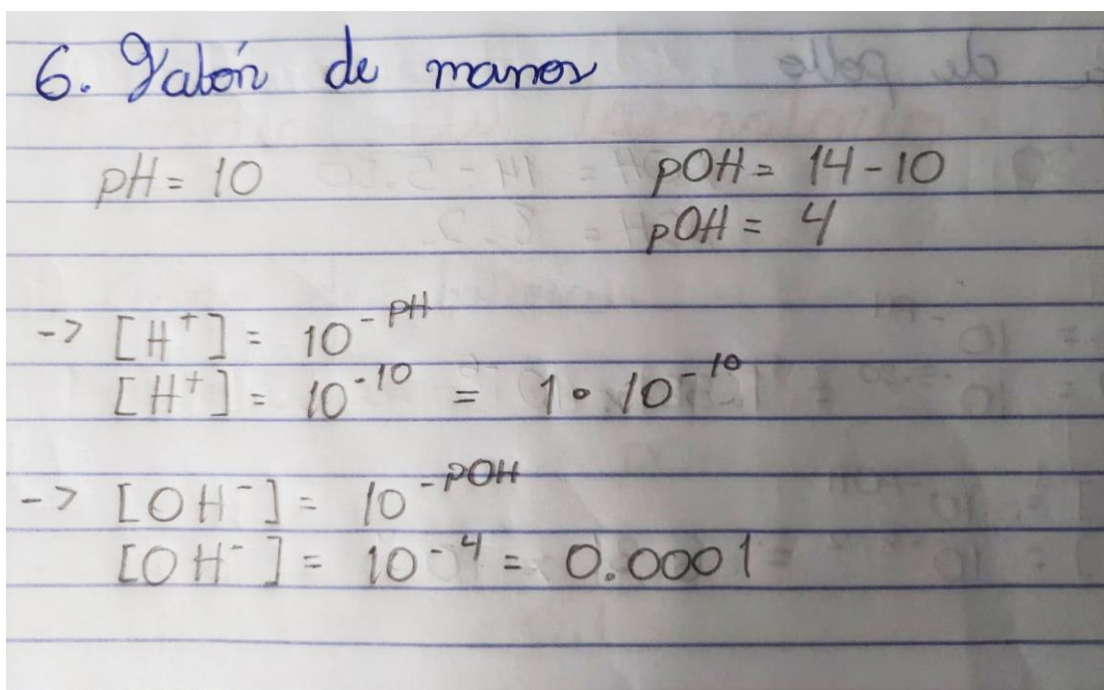 6. Jabón de manos
pH = 10
pOH = 14 - 10
pOH = 4
-> [H⁺] = 10⁻ᵖᴴ
[H⁺] = 10⁻¹⁰ = 1 • 10⁻¹⁰
-> [OH⁻] = 10⁻ᵖᴼᴴ
[OH⁻] = 10⁻⁴ = 0.0001